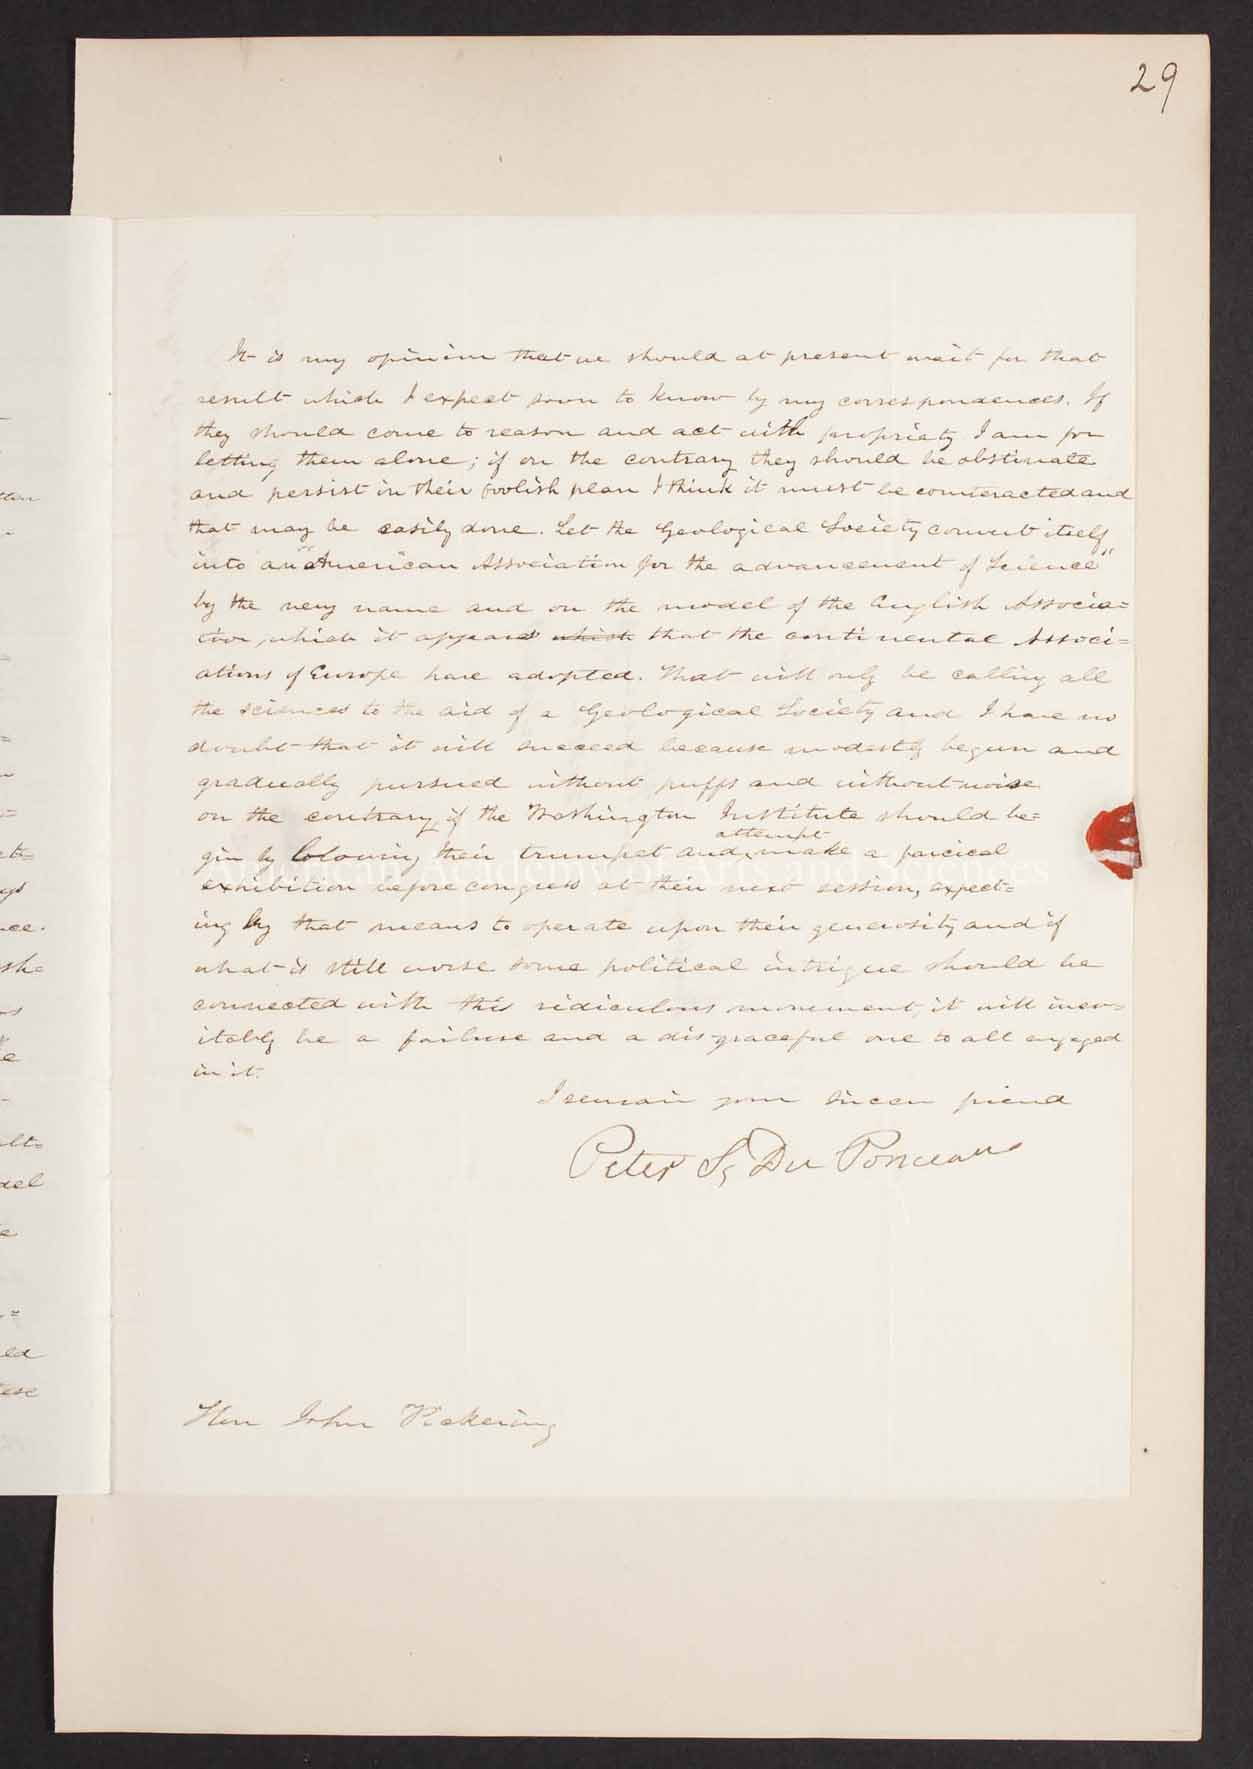 29
It is my opinion that we should at present wait for that
result which I expect soon to know by my correspondences. If
they should come to reason and act with propriety I am for
letting them alone; if on the contrary they should be obstinate
and persist in their foolish plan I think it must be counteracted and
that may be easily done. Let the Geological Society convert itself
into an "American Association for the advancement of Science"
by the very name and on the model of the English Associa=
tion, which it appears which that the continental Associ=
ations of Europe have adopted. That will only be calling all
the sciences to the aid of a Geological Society and I have no
doubt that it will succeed because modestly begun and
gradually pursued without puffs and without noise
on the contrary, if the Washington Institute should be=
attempt
gin by blowing their trumpet and make a farcical
exhibition before congress at their next session, expect=
ing by that means to operate upon their generosity and if
what is still worse some political intrigue should be
connected with this ridiculous movement, it will inev=
itably be a failure and a disgraceful one to all engaged
in it.
I remain your sincere friend
Peter S, Du Ponceau
Hon John Pickering
American Academy of Arts and Sciences